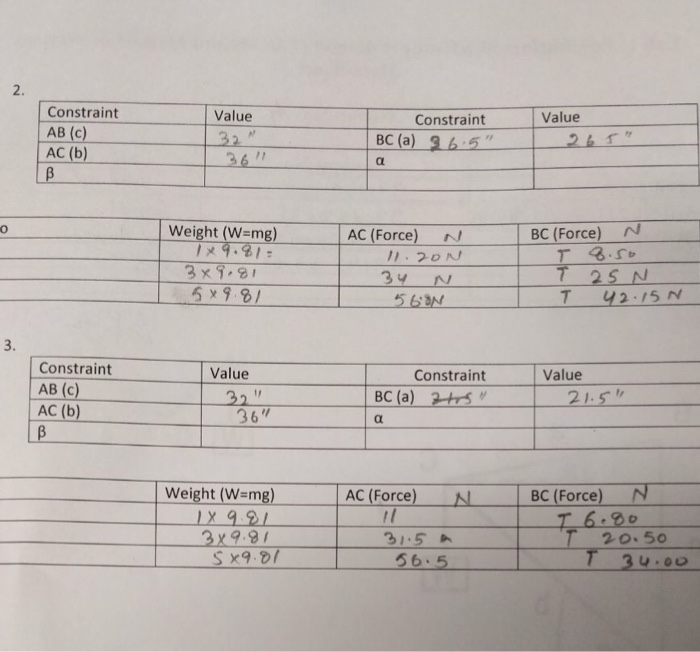 2.
Constraint Value Constraint Value
AB (c) 32" BC (a) 26.5" 26.5"
AC (b) 36" α
β
o Weight (W=mg) AC (Force) N BC (Force) N
1 x 9.81 = 11.20 N T 8.50
3 x 9.81 34 N T 25 N
5 x 9.81 N T 42.15 N
3.
Constraint Value Constraint Value
AB (c) 32" BC (a) 21.5"
AC (b) 36" α
β
Weight (W=mg) AC (Force) N BC (Force) N
1 x 9.81 11 T 6.80
3x9.81 31.5 T 20.50
5 x9.81 56.5 T 34.00